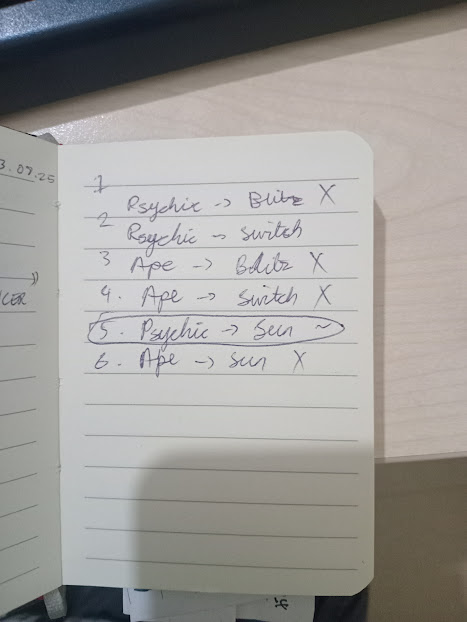 3.07.25
CER
1
Psychic → Blitz X
2 Psychic → Switch
3 Ape → Blitz X
4. Ape → Switch X
5. Psychic → Sun ~
6. Ape → Sun X